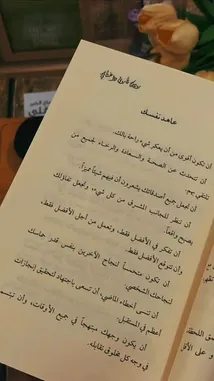 عاهد نفسك
أن تكون أقوى من أن يعكر شيء راحة بالك.
أن تتحدث عن الصحة والسعادة والرخاء لجميع من
تلتقي بهم.
أن تجعل جميع أصدقائك يشعرون أن فيهم شيئًا مميزًا.
أن تنظر للجانب المشرق من كل شيء، وتجعل تفاؤلك
يصبح واقعًا.
أن تفكر في الأفضل فقط، وتعمل من أجل الأفضل فقط،
وأن تتوقع الأفضل فقط.
أن تكون متحمسًا لنجاح الآخرين بنفس قدر حماسك
لنجاحك الشخصي.
أن تنسى أخطاء الماضي، أن تسعى باجتهاد لتحقيق إنجازات
أعظم في المستقبل.
أن يكون وجهك مبتهجًا في جميع الأوقات، وأن تبتسم
في وجه كل مخلوق تقابله.